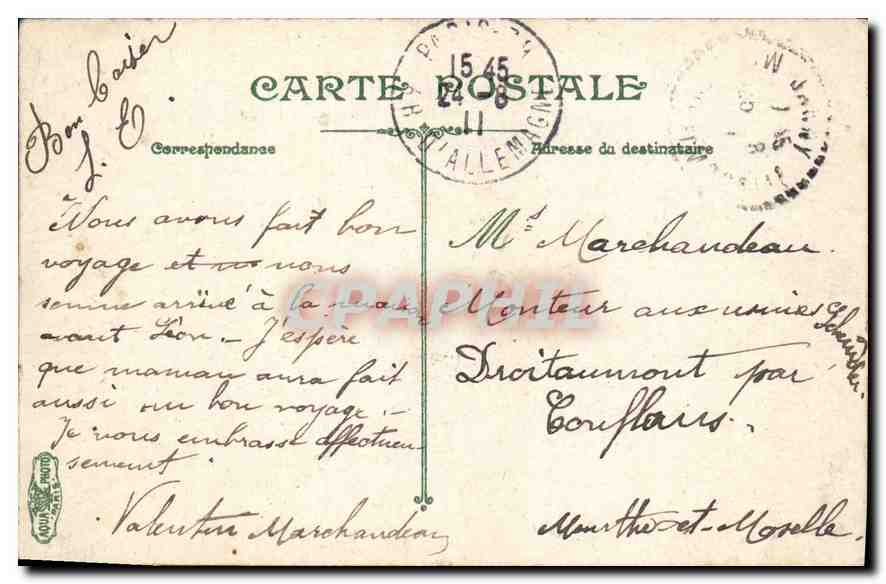 Bon Baiser
L. E.
CARTE POSTALE
Correspondance
Adresse du destinataire
15 45
24 - 8
11
D'ALLEMAGNE
Nous avons fait bon
voyage et nous
somme arrivé à la
avant Léon. - J'espère
que maman aura fait
aussi un bon voyage. -
Je vous embrasse affectueu
sement.
Valentin Marchandeau
Mr Marchandeau
Monteur aux usines Schneider
Droitaumont par
Conflans.
Meurthe-et-Moselle
AQUA PHOTO
PARIS
CPAPHIL